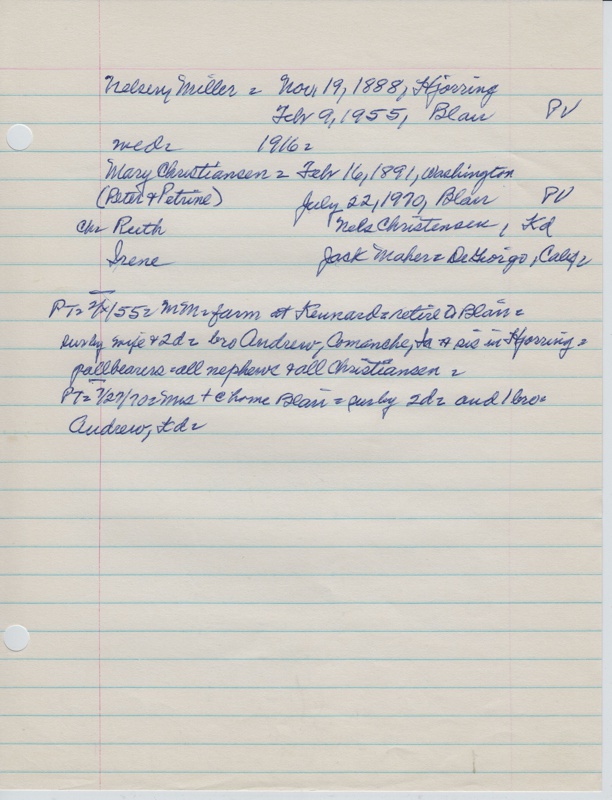 Nelseny Miller = Nov, 19, 1888, Hjorring
Feb 9, 1955, Blair PV
med= 1916=
Mary Christiansen = Feb 16, 1891, Washington
(Peter & Petrine) July 22, 1970, Blair PV
chr Ruth Nels Christensen, Kd
Irene Jack Maher= DeGiorgo, Calif=
PT= 2/ /55= Mr M= farm at Kennard= retire to Blair=
surby wife & 2d= bro Andrew, Comanche, Ia & sis in Hjorring=
pallbearers=all nephews & all Christiansen =
PT= 7/27/70= Mrs + @ home Blair= surby 2d= and 1 bro=
Andrew, Kd=